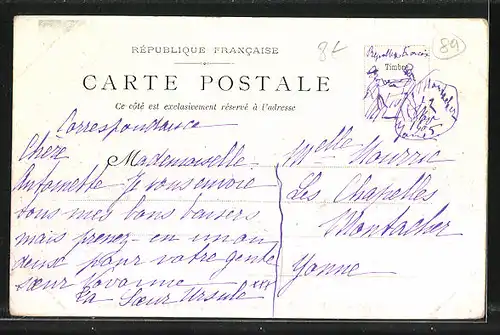 RÉPUBLIQUE FRANÇAISE
84
89
Timbre
CARTE POSTALE
Ce côté est exclusivement réservé à l'adresse
Correspondance
Chère Mademoiselle
Antoinette Je vous envoie
tous mes bons baisers
mais prenez-en un ou
deux pour votre gente
sœur Yovanne xxx
La Sœur Ursule
Melle Mourric
Les Chapelles
Montacher
Yonne